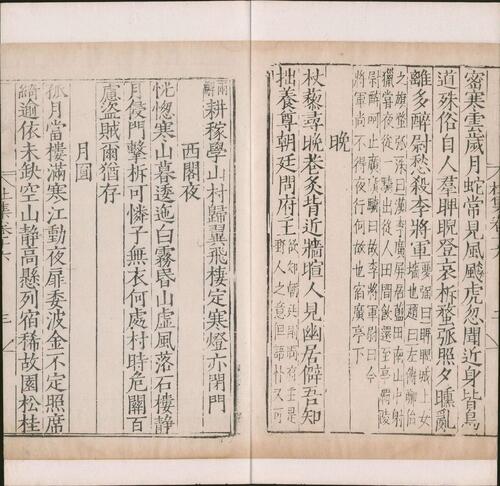 密寒雲歲月蛇常見風飇虎忽聞近身皆鳥
道殊俗自人羣睥睨登哀柝蝥弧照夕曛亂
離多醉尉愁殺李將軍
曰睥睨城上女
墻也趙曰左傳鄭伯
之旗蝥弧朱曰漢李廣屏居藍田南山中射
獵嘗夜從一騎出從人田間飲還至亭霸陵
尉醉呵止廣廣騎曰故李將軍尉曰今
將軍尚不得夜行何故也宿廣亭下
晚
杖藜尋晚巷炙背近牆暄人見幽居僻吾知
拙養尊朝廷問府主
欲知朝廷問府主是
野人之意但語甘又可
耕稼學山村歸翼飛棲定寒燈亦閉門
西閣夜
恍惚寒山暮逶迤白霧昏山虛風落石樓靜
月侵門擊柝可憐子無衣何處村時危關百
慮盜賊爾猶存
月圓
孤月當樓滿寒江動夜扉委波金不定照席
綺逾依未缺空山靜高懸列宿稀故園松桂
三